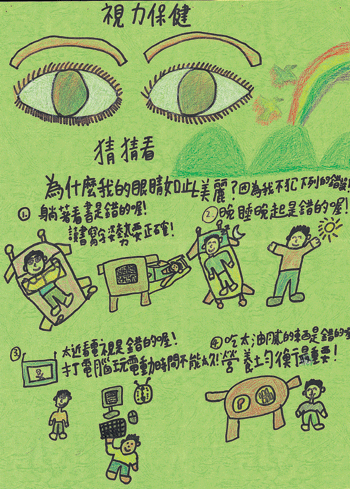 視力保健
猜猜看
為什麼我的眼睛如此美麗?因為我不犯下列的錯誤!
1. 躺著看書是錯的喔!
讀書寫字姿勢要正確!
2. 晚睡晚起是錯的喔!
3. 太近看電視是錯的喔!
打電腦玩電動時間不能太久!
4. 吃太油膩的東西是錯的喔!
營養均衡最重要!